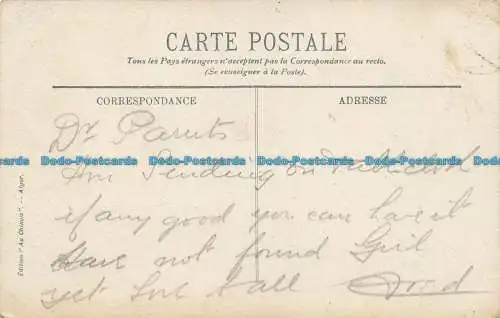 CARTE POSTALE
Tous les Pays étrangers n'acceptent pas la Correspondance au recto.
(Se renseigner à la Poste).
CORRESPONDANCE
ADRESSE
Dr Parents
Dodo-Postcards Dodo-Postcards Dodo-Postcards Dodo-Postcards Dodo-Postcards
Am Sending on
if any good you can have it
Have not found Girl
yet love to all
Edition "Au Chinois" -- Alger.